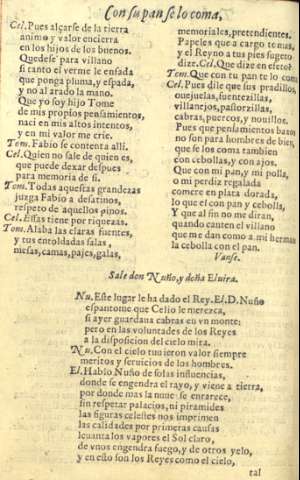 Con su pan se lo coma,
Cel. Pues alçarse de la tierra
animo y valor encierra
en los hijos de los buenos.
Quedese para villano
si tanto el verme le enfada
que ponga pluma, y espada,
y no al arado la mano.
Que yo soy hijo Tome
de mis propios pensamientos,
naci en mis altos intentos,
y en mi valor me crie.
Tom. Fabio se contenta alli.
Cel. Quien no sale de quien es,
que puede dexar despues
para memoria de si.
Tom. Todas aquestas grandezas
juzga Fabio a desatinos,
respeto de aquellos pinos.
Cel. Essas tiene por riquezas.
Tom. Alaba las claras fuentes,
y tus entoldadas salas,
mesas, camas, pajes, galas,
memoriales, pretendientes.
Papeles que a cargo tomas,
y el Reyno a tus pies sugeto
dize. Cel. Que dize en efeto?
Tom. Que con tu pan te lo comas.
Cel. Pues dile que sus pradillos,
ouejuelas, fuentezillas,
villanejos, pastorzillas,
cabras, puercos, y nouillos.
Pues que pensamientos baxos
no son para hombres de bien,
que se los coma tambien
con cebollas, y con ajos.
Que con mi pan, y mi polla,
o mi perdiz regalada
comere en plata dorada,
lo que el con pan y cebolla,
Y que al fin no me diran,
quando canten el villano
que me dan como a mi hermano
la cebolla con el pan.
Vanse.
Salen don Nuño, y doña Eluira.
Nu. Este lugar le ha dado el Rey. El. D. Nuño
espantome que Celio le merezca,
si ayer guardaua cabras en vn monte:
pero en las voluntades de los Reyes
a la disposicion del cielo mira.
Nu. Con el cielo tuuieron valor siempre
meritos y seruicios de los hombres.
El. Hablo Nuño de solas influencias,
donde se engendra el rayo, y viene a tierra,
por donde mas la nuue se enrarece,
sin respetar palacios, ni piramides
las figuras celestes nos imprimen
las calidades por primeras causas
leuanta los vapores el Sol claro,
de vnos engendra fuego, y de otros yelo,
y en esto son los Reyes como el cielo,
tal